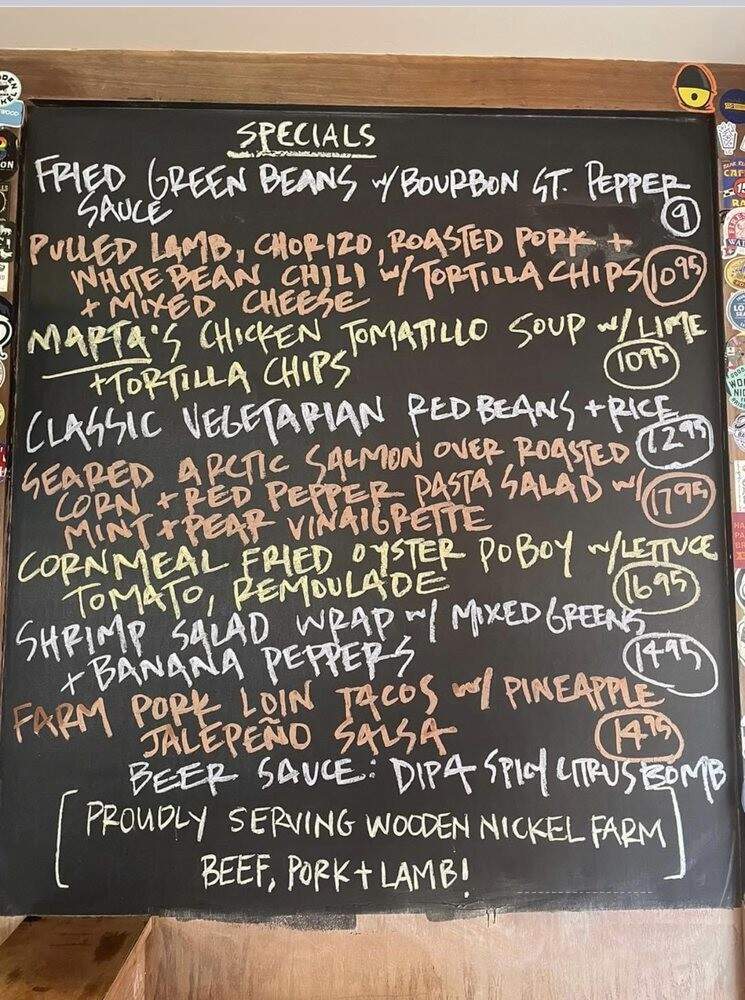 SPECIALS
FRIED GREEN BEANS w/ BOURBON ST. PEPPER
SAUCE 9
PULLED LAMB, CHORIZO, ROASTED PORK +
WHITE BEAN CHILI w/ TORTILLA CHIPS 10.95
+ MIXED CHEESE
MARTA'S CHICKEN TOMATILLO SOUP w/ LIME
+ TORTILLA CHIPS 10.95
CLASSIC VEGETARIAN RED BEANS + RICE 12.95
SEARED ARCTIC SALMON OVER ROASTED
CORN + RED PEPPER PASTA SALAD w/ 17.95
MINT + PEAR VINAIGRETTE
CORNMEAL FRIED OYSTER PO BOY w/ LETTUCE
TOMATO, REMOULADE 16.95
SHRIMP SALAD WRAP w/ MIXED GREENS
+ BANANA PEPPERS 14.95
FARM PORK LOIN TACOS w/ PINEAPPLE
JALEPEÑO SALSA 14.95
BEER SAUCE: DIPA SPICY CITRUS BOMB
[PROUDLY SERVING WOODEN NICKEL FARM
BEEF, PORK + LAMB!]